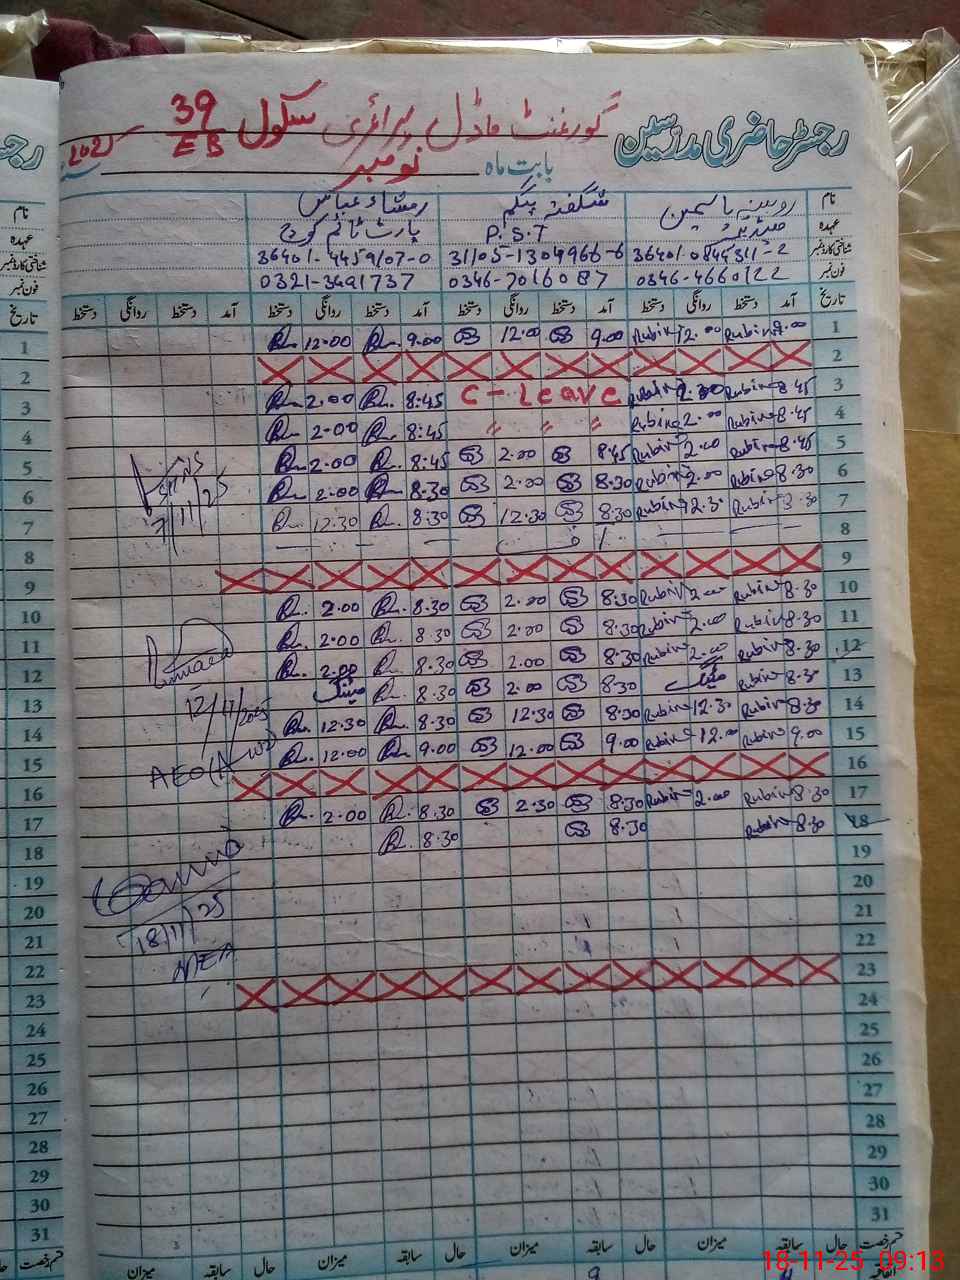 رجسٹر حاضری مدرسین گورنمنٹ ماڈل پرائمری سکول 39/EB
بابت ماہ نومبر 2025
نام روبینہ یاسمین شگفتہ بیگم رمشاء عباس
عہدہ ہیڈ ٹیچر P.S.T پارٹ ٹائم کوچ
شناختی کارڈ نمبر 31105-1304966-6 36401-4459107-0
فون نمبر 0346-4660122 0346-7016087 0321-3491737
تاریخ آمد دستخط روانگی دستخط آمد دستخط روانگی دستخط آمد دستخط روانگی دستخط آمد دستخط روانگی دستخط
1 9.00 Rubina 12.00 Rubina 9.00 12.00 9.00 12.00 1
2 2
3 8.45 Rubina 2.00 Rubina C-Leave 8.45 2.00 3
4 8.45 Rubina 2.00 Rubina 〃 〃 〃 8:45 2.00 4
5 8.45 Rubina 2.00 Rubina 8.45 2.00 8.45 2.00 5
6 8.30 Rubina 2.00 Rubina 8.30 2.00 8.30 2.00 6
7 8.30 Rubina 12.30 Rubina 8.30 12.30 8.30 12.30 7
7/11/25
8 8
9 9
10 8.30 Rubina 2.00 Rubina 8.30 2.00 8.30 2.00 10
11 8.30 Rubina 2.00 Rubina 8.30 2.00 8.30 2.00 11
12 8.30 Rubina 2.00 Rubina 8.30 2.00 8.30 2.00 12
13 8.30 Rubina میٹنگ 8.30 2.00 8.30 میٹنگ 13
12/11/2025
14 8.30 Rubina 12.30 Rubina 8.30 12.30 8.30 12.30 14
15 9.00 Rubina 12.00 Rubina 9.00 12.00 9.00 12.00 15
AEO
16 16
17 8.30 Rubina 2.00 Rubina 8.30 2.30 8.30 2.00 17
18 8.30 Rubina 8.30 8.30 18
19 19
20 20
21 21
18/11/25
22 22
MEA
23 23
24 24
25 25
26 26
27 27
28 28
29 29
30 30
31 31
قسم رخصت حال سابقہ میزان حال سابقہ میزان حال سابقہ میزان حال سابقہ میزان
18-11-25 09:13